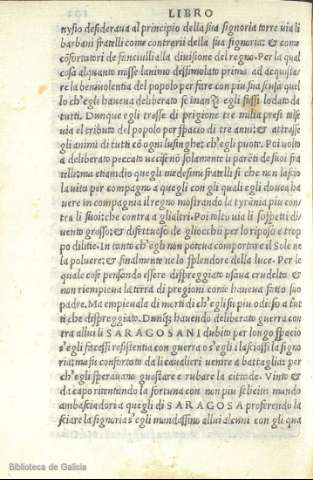 LIBRO
nysio desideraua al principio della sua signoria torre uia li
barbani fratelli come contrerii della sua signoria: & come
cōfortatori de fanciulli alla diuisione del regno. Per la qual
cosa alquanto misse l'animo dessimolato prima ad acquista-
re la beniuolentia del popolo per fare con piu sua scusa quel
lo ch'egli haueua deliberato se inanzi egli fussi lodato da
tutti. Dunque egli trasse di prigione tre milia presi tolse
uia el tributo del popolo per spacio di tre anni: & attrasse
gli animi di tutti cō ogni lusinghe: ch'egli puote. Poi uolto
a deliberato peccato uccise nō solamente li parēti de suoi fra
telli: ma etiandio quegli medesimi fratelli si che non lascio
la uita per compagno a quegli con gli quali egli doueua ha
uere in compagnia il regno mostrando la tyrānia piu con-
tra li suoi: che contra a gli altri. Poi tolto uia li sospetti di
uento grosso: & disettuoso de gli occhii per lo riposo e trop
po dilitie. In tanto ch'egli non poteua comportare il Sole ne
la poluere: & finalmente ne lo splendore della luce. Per le
quale cose pensando essere dispreggiato usaua crudelta &
non riempieua la terra di pregioni come haueua fatto suo
padre. Ma empieuala di morti di ch'egli si piu odioso a tut
ti che dispreggiato. Dunque hauendo deliberato guerra con
tra allui li SARAGOSANI dubito per longo spacio
s'egli facessi resistentia con guerra o s'egli lasciassi la signo
ria: ma fu confortato da li caualieri uenire a battaglia: per
ch'egli sperauano guastare e rubare la cittade. Vinto &
dicapo ritentando la fortuna con non piu felicita mando
ambasciadori a quegli di SARAGOSA proferendo la
sciare la signoria s'egli mandassino allui alcuni con gli qua
Biblioteca de Galicia